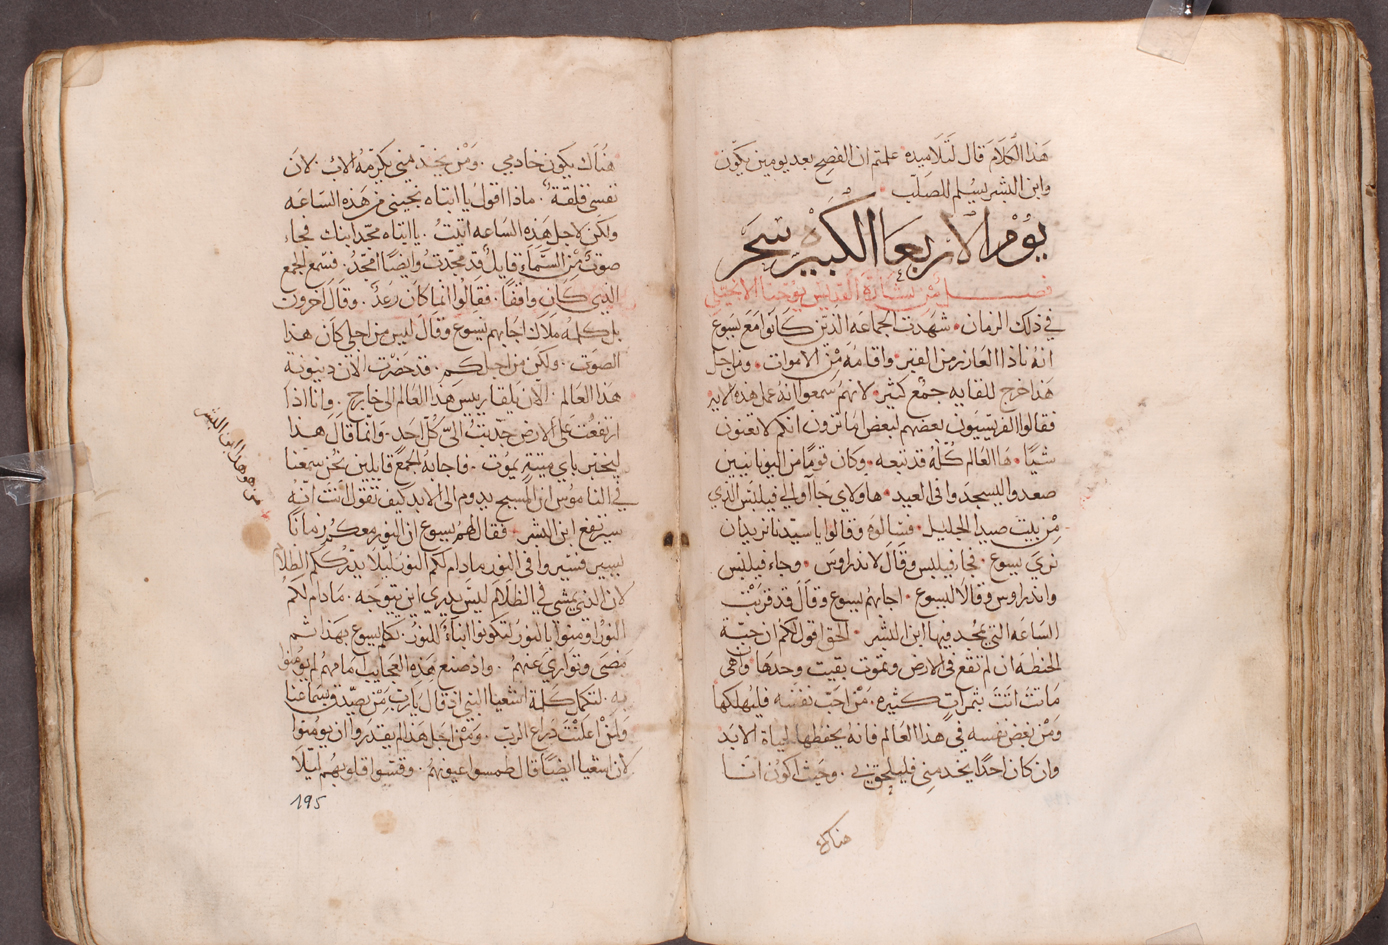 هذا الكلام قال لتلاميذه علمتم ان الفصح بعد يومين يكون
وابن البشر يسلم للصلب
يوم الاربعا الكبير سحر
فصل من بشارة القديس يوحنا الانجيلي
في ذلك الزمان شهدت الجماعه الذين كانوا مع يسوع
انه نادا العازر من القبر واقامه من الاموات ومن اجل
هذا خرج للقايه جمع كثير لانهم سمعوا انه عمل هذه الايه
فقالوا الفريسيون بعضهم لبعض اما ترون انكم لا تغنون
شيًا ها العالم كله قد تبعه وكان قومًا من اليونانيين
صعدوا ليسجدوا في العيد هاولاي جاآوا الي فيلبس الذي
من بيت صيدا الجليل فسالوه وقالوا يا سيدنا نريد ان
نري يسوع فجا فيلبس وقال لاندراوس وجاء فيلبس
واندراوس وقالا ليسوع اجابهم يسوع وقال قد قربت
الساعه التي يمجد فيها ابن البشر الحق اقول لكم ان حبة
الحنطه ان لم تقع في الارض وتموت بقيت وحدها واهي
ماتت اتت بثمرات كثيره من احب نفسه فليهلكها
ومن بغض نفسه في هذا العالم فانه يحفظها لحياة الابد
وان كان احدًا يخدمني فليلحق بي وحيث اكون انا
هناك
هناك يكون خادمي ومن يخدمني يكرمه الاب لان
نفسي قلقة ماذا اقول يا ابتاه نجيني من هذه الساعه
ولكن لاجل هذه الساعه اتيت يا ابتاه مجد ابنك فجاء
صوت من السماء قايل قد مجدت وايضًا امجد فسمع الجمع
الذي كان واقفا فقالوا انما كان رعد وقال اخرون
بل كلمه ملاك اجابهم يسوع وقال ليس من اجلي كان هذا
الصوت ولكن من اجلكم قد حضرت الان دينونة
هذا العالم الآن يلقا رييس هذا العالم الي خارج وانا اذا
ارتفعت على الارض جذبت الى كل احد وانما قال هذا
ليخبر باي ميتة يموت فاجابه الجمع قايلين نحن سمعنا
في الناموس ان المسيح يدوم الى الابد كيف تقول انت انه
سيرتفع ابن البشر فقال لهم يسوع ان النور معكم زمانًا
يسير فسيروا في النور مادام لكم النور ليلا يدرككم الظلام
لان الذي يمشي في الظلام ليس يدري اين يتوجه مادام لكم
النور اومنوا بالنور لتكونوا ابناء النور تكلم يسوع بهذا ثم
مضى وتواري عنهم واذ صنع هذه العجايب امامهم لم يومنوا
به لتكمل كلمة اشعيا النبي اذ قال يا رب من صدق سماعنا
ولمن اعلنت دراع الرب ومن اجل هذا لم يقدروا ان يومنوا
لان اشعيا ايضًا قال طمسوا عيونهم وقسوا قلوبهم ليلا
من هو هذا ابن البشر
195